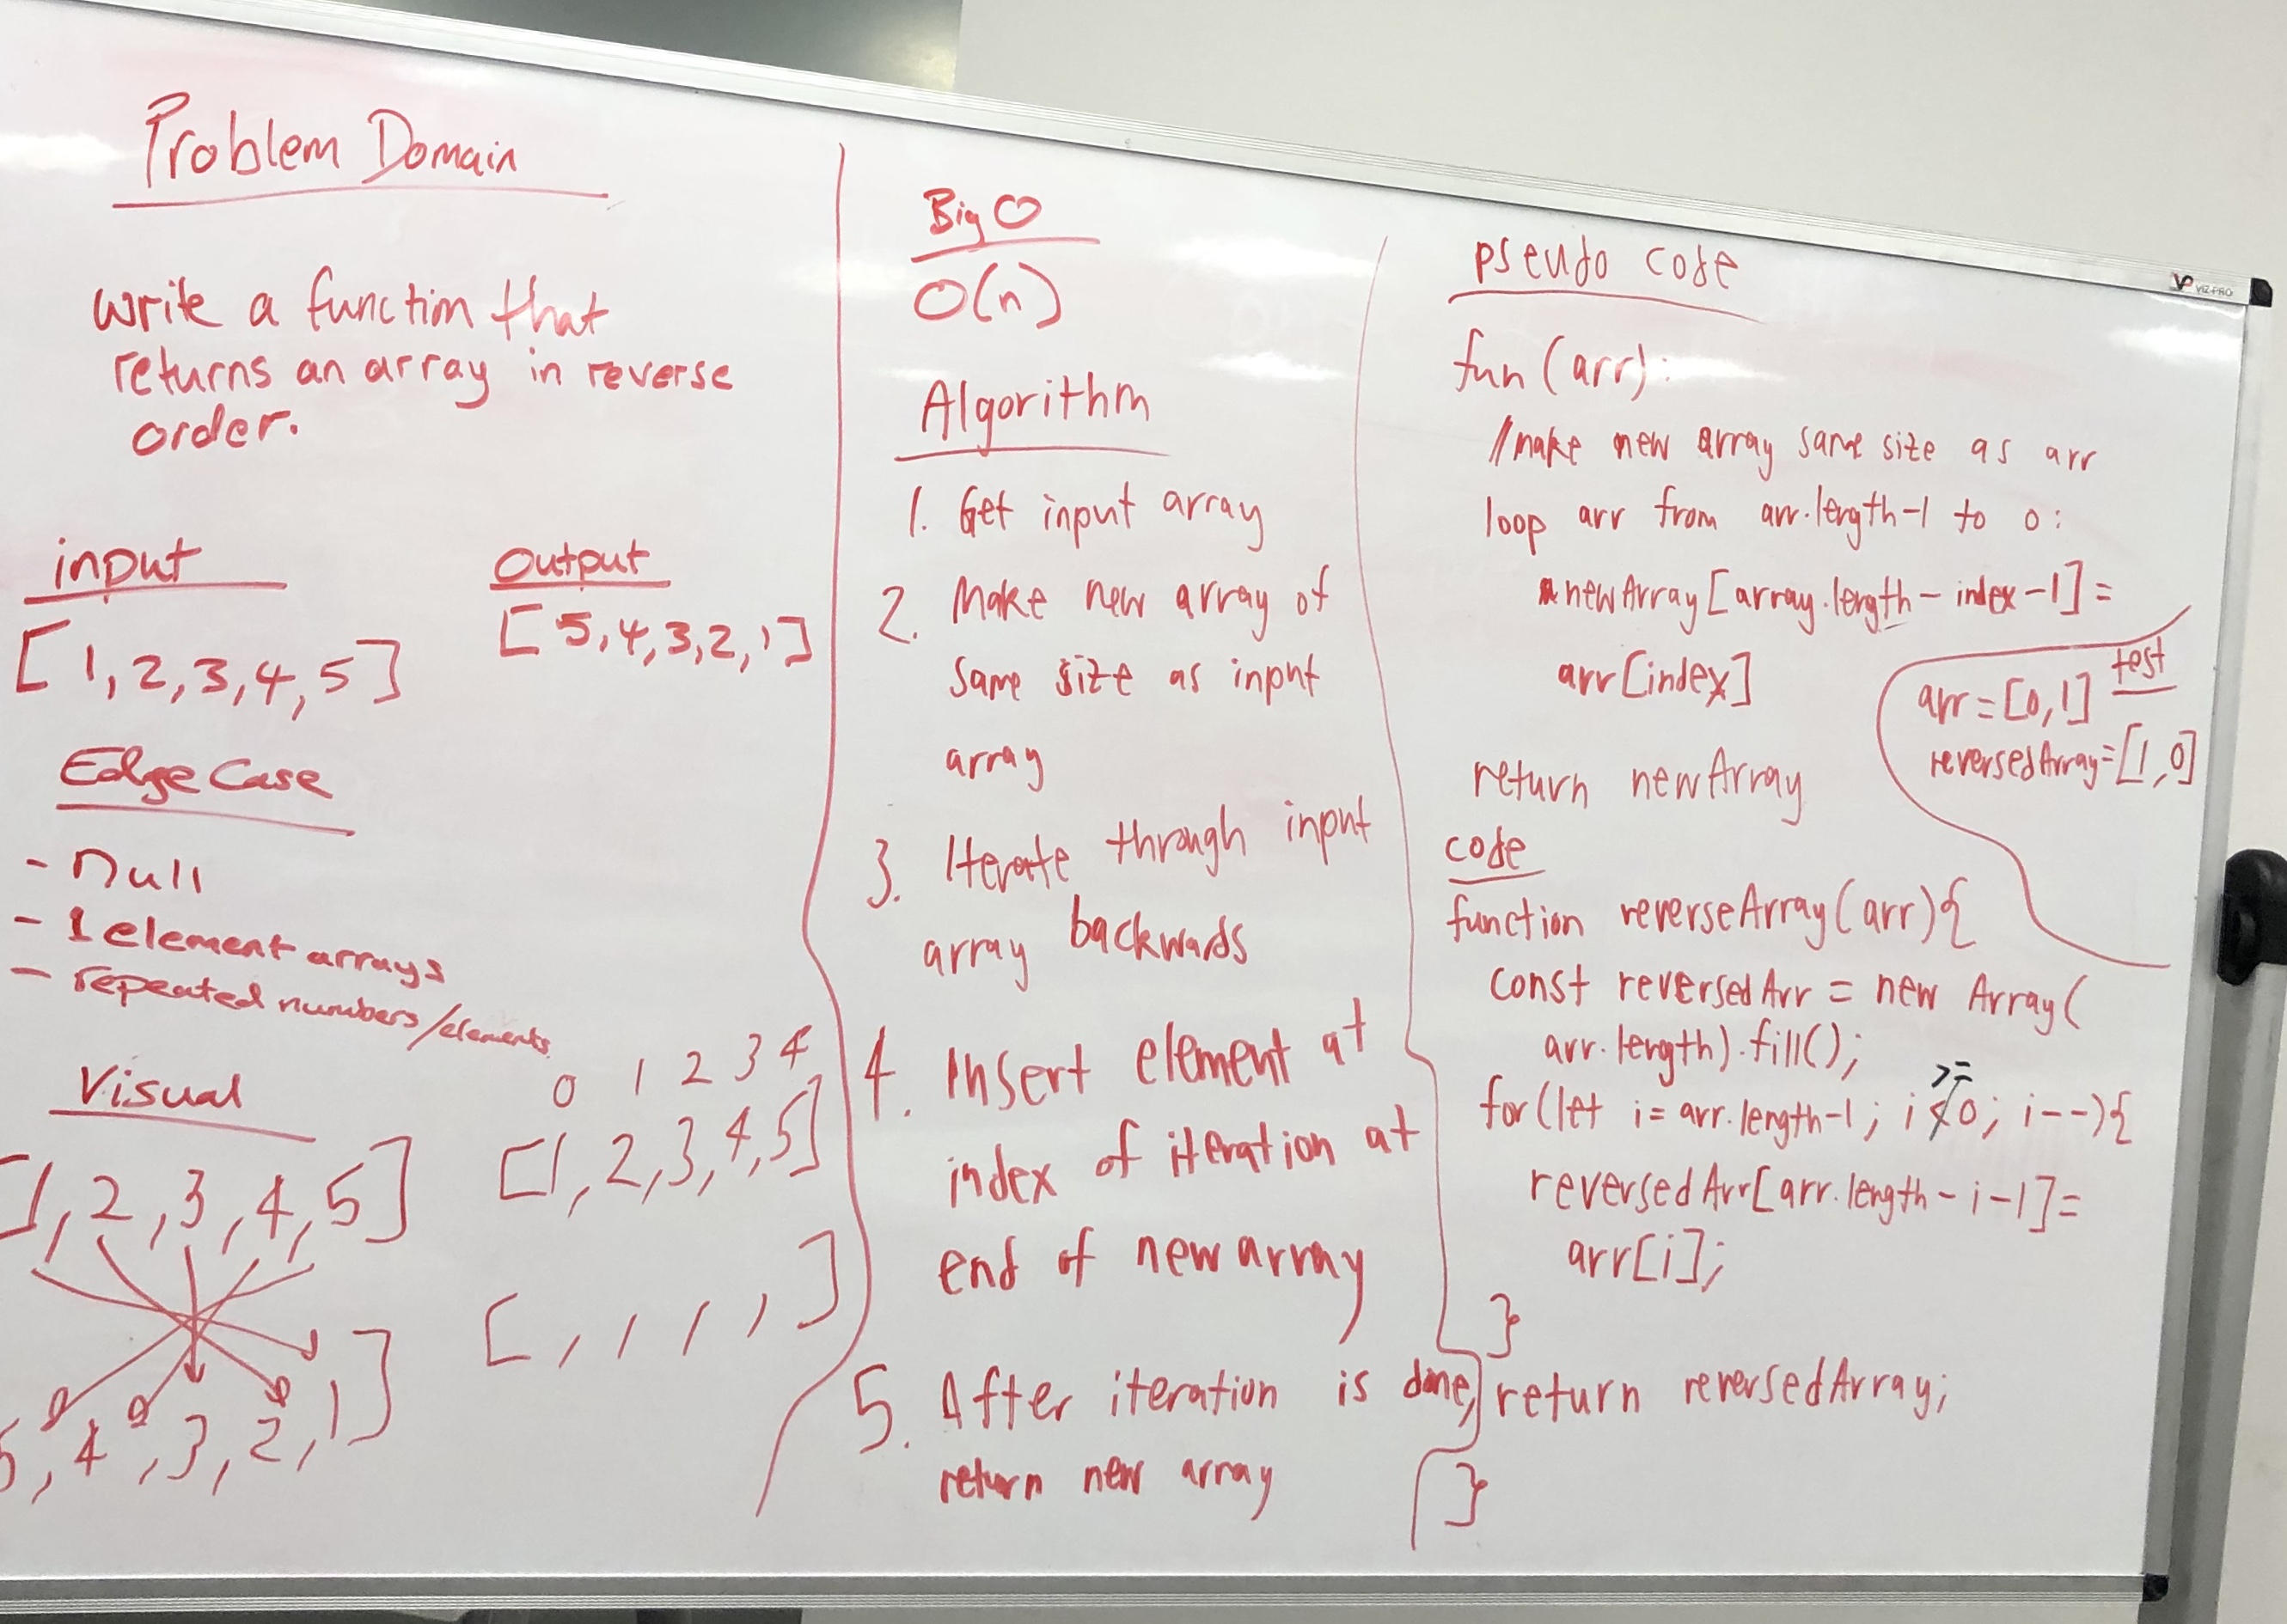 Problem Domain
write a function that
returns an array in reverse
order.
input
[1,2,3,4,5]
output
[5,4,3,2,1]
Edge Case
- null
- 1 element arrays
- repeated numbers/elements
Visual
[1,2,3,4,5]
5,4,3,2,1]
0 1 2 3 4
[1,2,3,4,5]
[ , , , , ]
Big O
O(n)
Algorithm
1. Get input array
2. Make new array of
same size as input
array
3. Iterate through input
array backwards
4. Insert element at
index of iteration at
end of new array
5. After iteration is done,
return new array
pseudo code
fun (arr):
//make new array same size as arr
loop arr from arr.length-1 to 0:
newArray[array.length - index -1] =
arr[index]
return newArray
test
arr = [0,1]
reversedArray = [1,0]
code
function reverseArray(arr){
const reversedArr = new Array(
arr.length).fill();
>=
for(let i = arr.length-1; i < 0; i--){
reversedArr[arr.length - i -1] =
arr[i];
}
return reversedArray;
}
VIZ-PRO